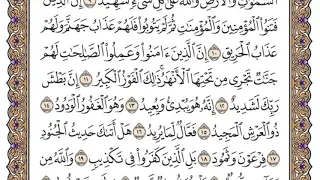 السَّمَٰوَٰتِ وَالْأَرْضِ وَاللَّهُ عَلَىٰ كُلِّ شَيْءٍ شَهِيدٌ ٩ إِنَّ الَّذِينَ
فَتَنُوا الْمُؤْمِنِينَ وَالْمُؤْمِنَٰتِ ثُمَّ لَمْ يَتُوبُوا فَلَهُمْ عَذَابُ جَهَنَّمَ وَلَهُمْ
عَذَابُ الْحَرِيقِ ١٠ إِنَّ الَّذِينَ ءَامَنُوا وَعَمِلُوا الصَّٰلِحَٰتِ لَهُمْ
جَنَّٰتٌ تَجْرِي مِن تَحْتِهَا الْأَنْهَٰرُ ذَٰلِكَ الْفَوْزُ الْكَبِيرُ ١١ إِنَّ بَطْشَ
رَبِّكَ لَشَدِيدٌ ١٢ إِنَّهُ هُوَ يُبْدِئُ وَيُعِيدُ ١٣ وَهُوَ الْغَفُورُ الْوَدُودُ ١٤
ذُو الْعَرْشِ الْمَجِيدُ ١٥ فَعَّالٌ لِّمَا يُرِيدُ ١٦ هَلْ أَتَىٰكَ حَدِيثُ الْجُنُودِ
١٧ فِرْعَوْنَ وَثَمُودَ ١٨ بَلِ الَّذِينَ كَفَرُوا فِي تَكْذِيبٍ ١٩ وَاللَّهُ مِن